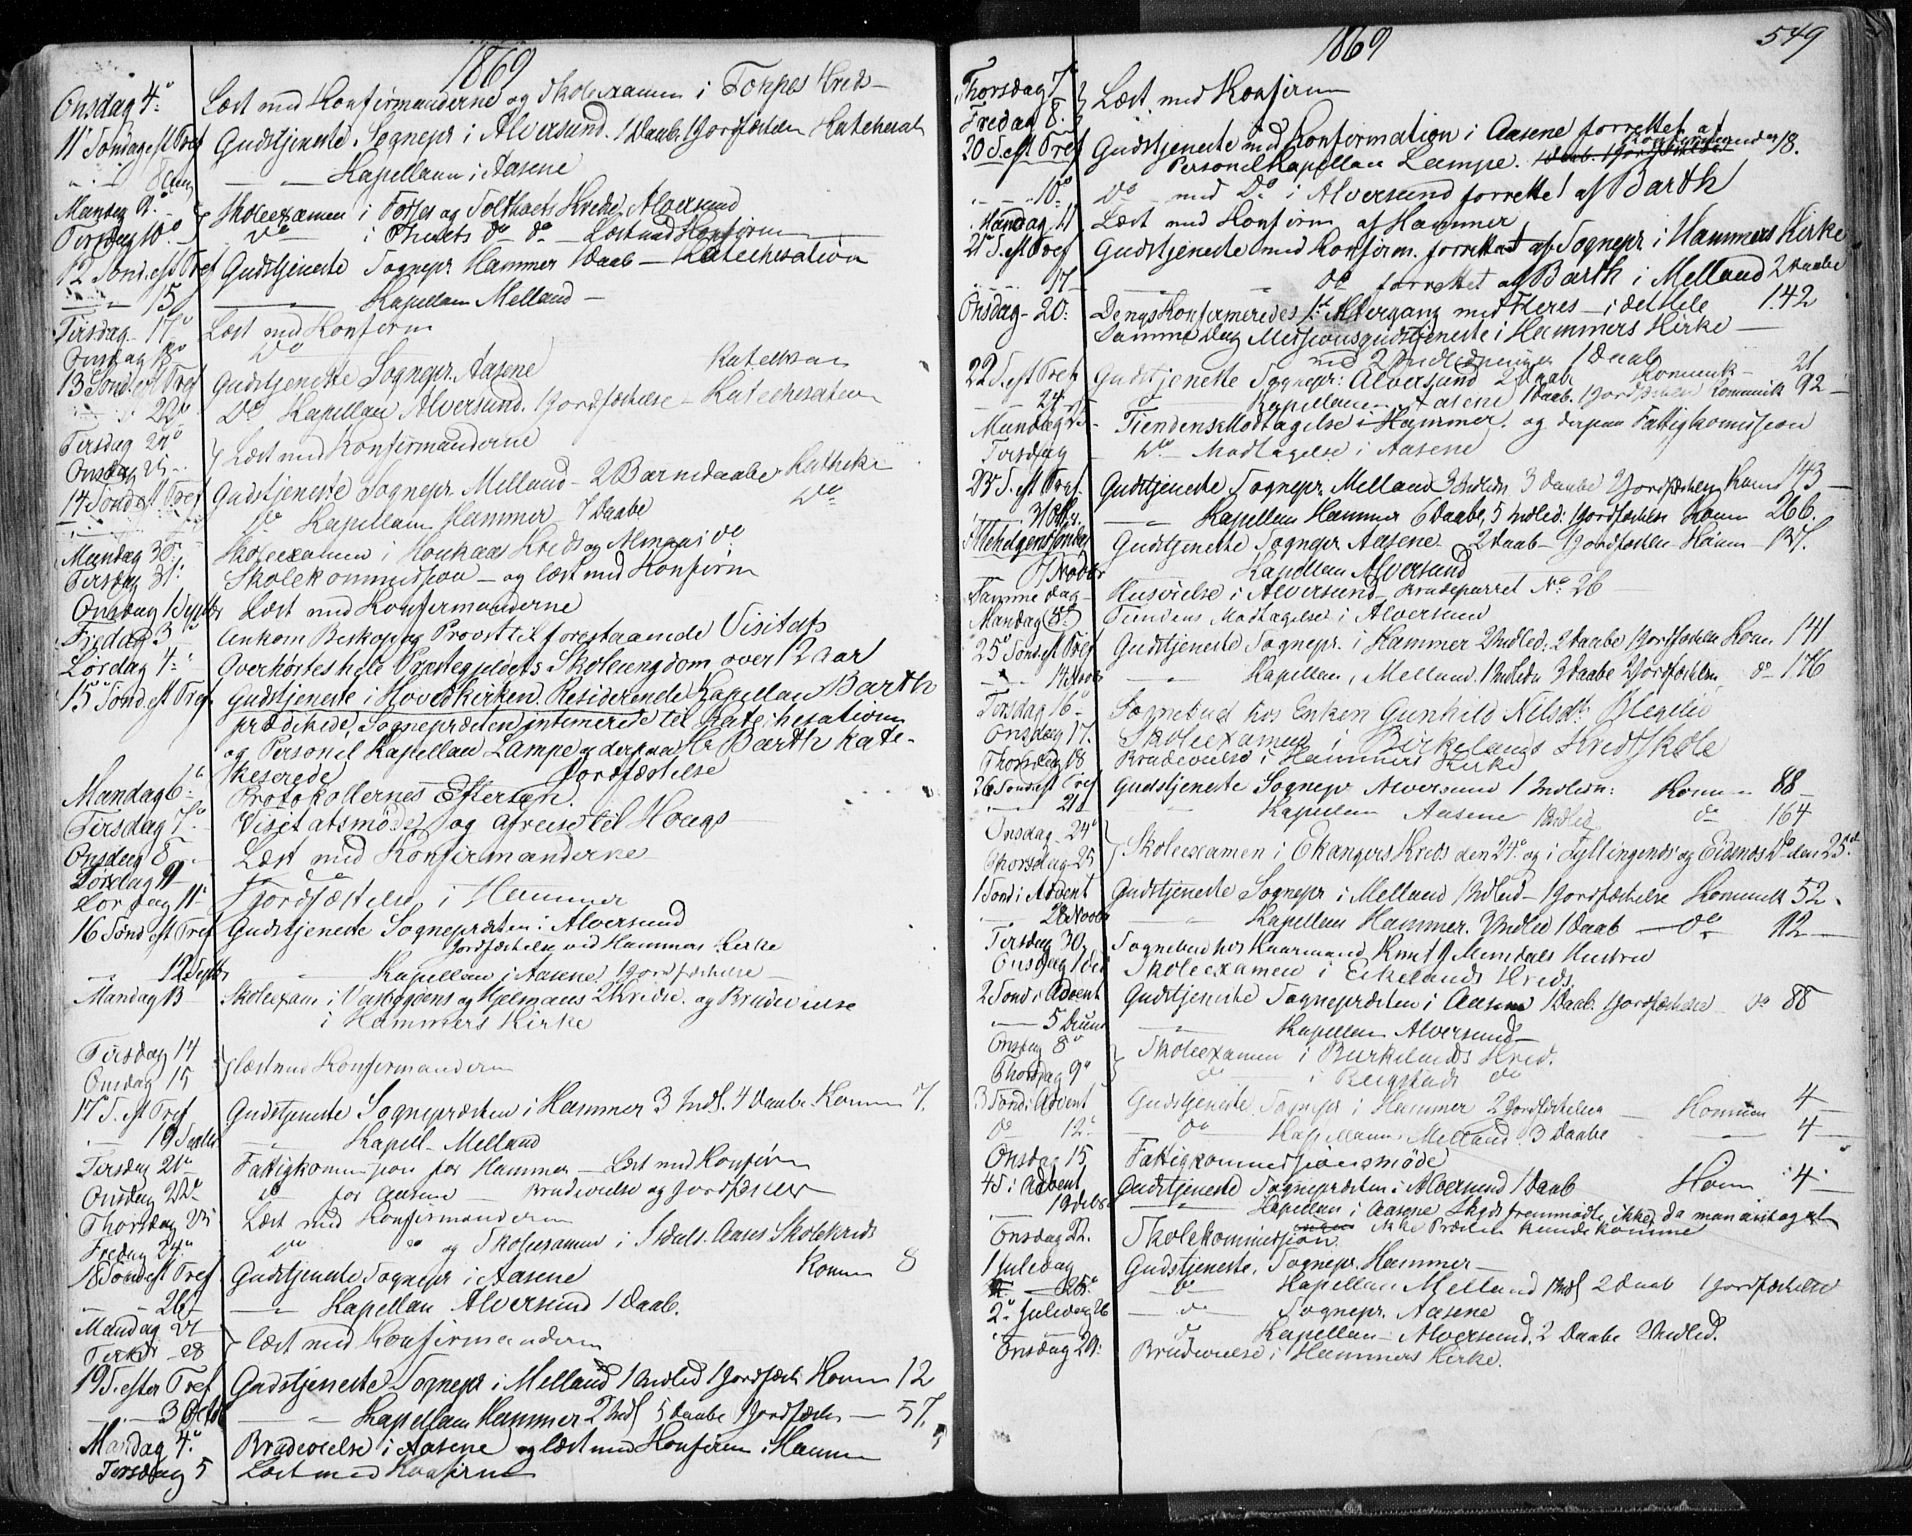 1869
Onsdag 4.° Læst med Konfirmanderne og Skoleexamen i Fosses Kreds
11° Søndag eft Tref Gudstjeneste Sognepr i Alversund. 1 Daab. 1 Jordfæstelse Katechesat
8 Aug — Kapellanen i Aasene
Mandag 9.° Skoleexamen i Fosses og Kredse Alversund
Tirsdag 10.° do i do do — Læst med Konfirm
12 Sønd. eft Tref Gudstjeneste Sognepr Hammer 1 Daab — Katechesation
15 — Kapellan Melland —
Tirsdag 17° Læst med Konfirm
Onsdag 18° Do
13 Sønd eft Tref Gudstjeneste Sognepr. Aasene Katekesa
22. Do Kapellan Alversund. 1 Jordfæstelse — Katechesation
Tirsdag 24° Læst med Konfirmanderne
Onsdag 25
14 Sønd eft Tref Gudstjeneste Sognepr. Melland — 2 Barnedaabe Katheke
Do Kapellan Hammer 7 Daabe Do
Mandag 30. Skoleexamen i Kreds og do
Tirsdag 31. Skolekommission — og læst med Konfirm
Onsdag 1 Septbr Læst med Konfirmanderne
Fredag 3° Ankom Biskop og Provst til forestaaende Visitats
Lørdag 4.° Overhørtes hele Præstegjeldets Skoleungdom over 12 Aar
15° Sønd. eft Tref. Gudstjeneste i Hovedkirken. Residerende Kapellan Barth
prædikede, Sognepræsten intimerede til Katechesationen
og Personel Kapellan Lampe og derpaa Hr Barth kate-
keserede Jordfæstelse
Mandag 6.° Protokollernes Eftersyn.
Tirsdag 7.° Visitatsmøde og afreise til Hougs
Onsdag 8 — Læst med Konfirmanderne
Torsdag 9 do do
Lørdag 11° Jordfæstelse i Hammer
16 Sønd eft Tref Gudstjeneste Sognepræsten i Alversund
Jordfæstelse ved Hammers Kirke
12 Septbr — Kapellan i Aasene. 1 Jordfæstelse —
Mandag 13 Skoleexam i og Hjelmaas 2 Kredse. og Brudevielse
i Hammers Kirke
Tirsdag 14
Onsdag 15 læst med Konfirmanderne
17° S. eft Tref Gudstjeneste Sognepræsten i Hammer 3 Indl. 4 Daabe. Komm 7.
19 Septbr — Kapell. Melland
Tirsdag 21° Fattigkommission for Hammer — Læst med Konfirm
Onsdag 22° do for Aasene — Brudevielse og Jordfæstelse
Thorsdag 23 Læst med Konfirmanderne
Fredag 24° do do og Skoleexamen i Aases Skolekreds
18 Sønd eft Tref Gudstjeneste Sognepr i Aasene Komm 8
26 — Kapellan Alversund 1 Daab.
Mandag 27
Tirsdag 28 læst med Konfirmanderne
19 S. efter Tref Gudstjeneste Sognepr i Melland 1 Indled 1 Jordfæst Komm 12
3 Octb — Kapellan Hammer 2 Indl 5 Daabe 1 Jordfæst — 57.
Mandag 4.° Brudevielse i Aasene og læst med Konfirm i Hamm
Tirsdag 5 Læst med Konfirm
1869 549
Thorsdag 7
Fredag 8. Læst med Konfirm
20 S. eft Tref Gudstjeneste med Konfirmation i Aasene forrettet af
Personel Kapellan Lampe. Konfirmander 18.
10° Do med Do i Alversund forrettet af Barth
Mandag 11 Læst med Konfirm af Hammer
21° S. eft Tref Gudstjeneste med Konfirm. forrettet af Sognepr i Hammers Kirke
17 — do forrettet af Barth i Melland 2 Daabe
Onsdag 20: De nys Konfirmeredes 1ste Altergang med Fleres — i det Hele 142
Samme Dag Missionsgudstjeneste i Hammers Kirke —
22 S. eft Tref Gudstjeneste Sognepr: Alversund 2 Daabe Komunik — 21
24 — Kapellan Aasene 1 Daab. 1 Jordfæstelse Komunik 92 —
Mandag 25 Tiendens Modtagelse i Hammer. og derpaa Fattigkomission
Tirsdag Do Modtagelse i Aasene
23 S. eft Tref. Gudstjeneste Sognepr. Melland 3 Indledn 3 Daabe 2 Jordfæstelser Komm 143 —
31 Oktbr. — Kapellan Hammer 6 Daabe, 5 Indled: 1 Jordfæstelse Komm 266.
Allehelgensøndag Gudstjeneste Sognepr. Aasene 2 Daab — 1 Jordfæstelse Komm 137.
7 Novbr Kapellan Alversund
Samme Dag — Husvielse i Alversund Brudeparret No 26 —
Mandag 8° Tiendens Modtagelse i Alversund
25° Sønd eft Tref Gudstjeneste Sognepr. i Hammer 2 Indled: 2 Daabe 1 Jordfæstelse Kom. 141
14 Novbr — Kapellan i Melland. 1 Indledn 3 Daabe 2 Jordfæstelser do 176
Tirsdag 16° Sognebud hos Enken Gunhild Nilsdt.
Onsdag 17. Skoleexamen i Birkelands Kredsskole
Thorsdag 18 Brudevielse i Hammers Kirke
26 Sønd eft Tref Gudstjeneste Sognepr Alversund 1 Indledn: Komm 88 —
21 — Kapellan Aasene 1 Indled do 164
Onsdag 24°
Thorsdag 25 Skoleexamen i Ekangers Kreds den 24° og i Fyllingsnes og Eidsnes Do den 25de
1 Sønd i Advent Gudstjeneste Sognepr i Melland 1 Indled — 1 Jordfæstelse Komunik 52.
28 Novbr Kapellan Hammer. 3 Indled 1 Daab — do 112 —
Tirsdag 30. Sognebud hos Kaarmand Knut Mundals Hustru
Onsdag 1 Dec Skoleexamen i Eikelands Kreds,
2 Sønd i Advent Gudstjeneste Sognepræsten i Aasene 1 Daab. 1 Jordfæstelse do 88
5 Decmb — Kapellan Alversund —
Onsdag 8° Skoleexamen i Birkelands Kreds.
Thorsdag 9° do i do
3 Sønd i Advent Gudstjeneste Sognepr i Hammer 2 Jordfæstelser — Komm 4 —
Do 12. Do Kapellan Melland 3 Daabe — 4 —
Onsdag 15 Fattigkommissionsmøde
4 S. i Advent. Gudstjeneste Sognepræsten i Alversund 1 Daab Komm 4 —
19 decbr — Kapellan i Aasene Ingen fremmødte, ikke da man antog at
ikke Præsten kunde komme
Onsdag 22. Skolekommission
1 Juledag Gudstjeneste. Sognepr. Hammer —
25° — do Kapellan Melland 1 Indl 2 Daab 1 Jordfæstelse
2° Juledag 26 — do Sognepr. Aasene
do Kapellan Alversund. 2 Daabe 2 Indled.
Onsdag 29: Brudevielse i Hammers Kirke.